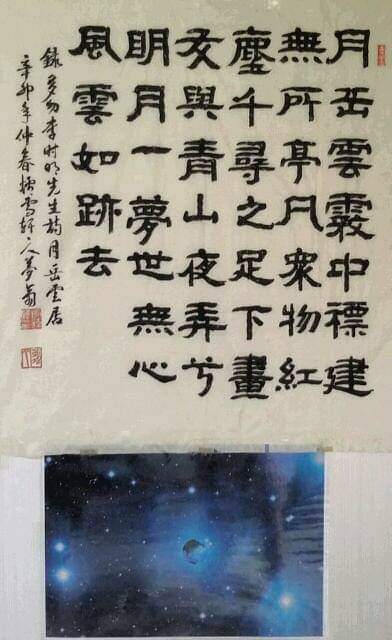 月岳雲霧中標建
無所亭凡衆物紅
塵千尋之足下晝
友與青山夜弄兮
明月一夢世無心
風雲如跡去
錄李时明先生月岳雲居
辛卯年仲春雪轩人夢翁